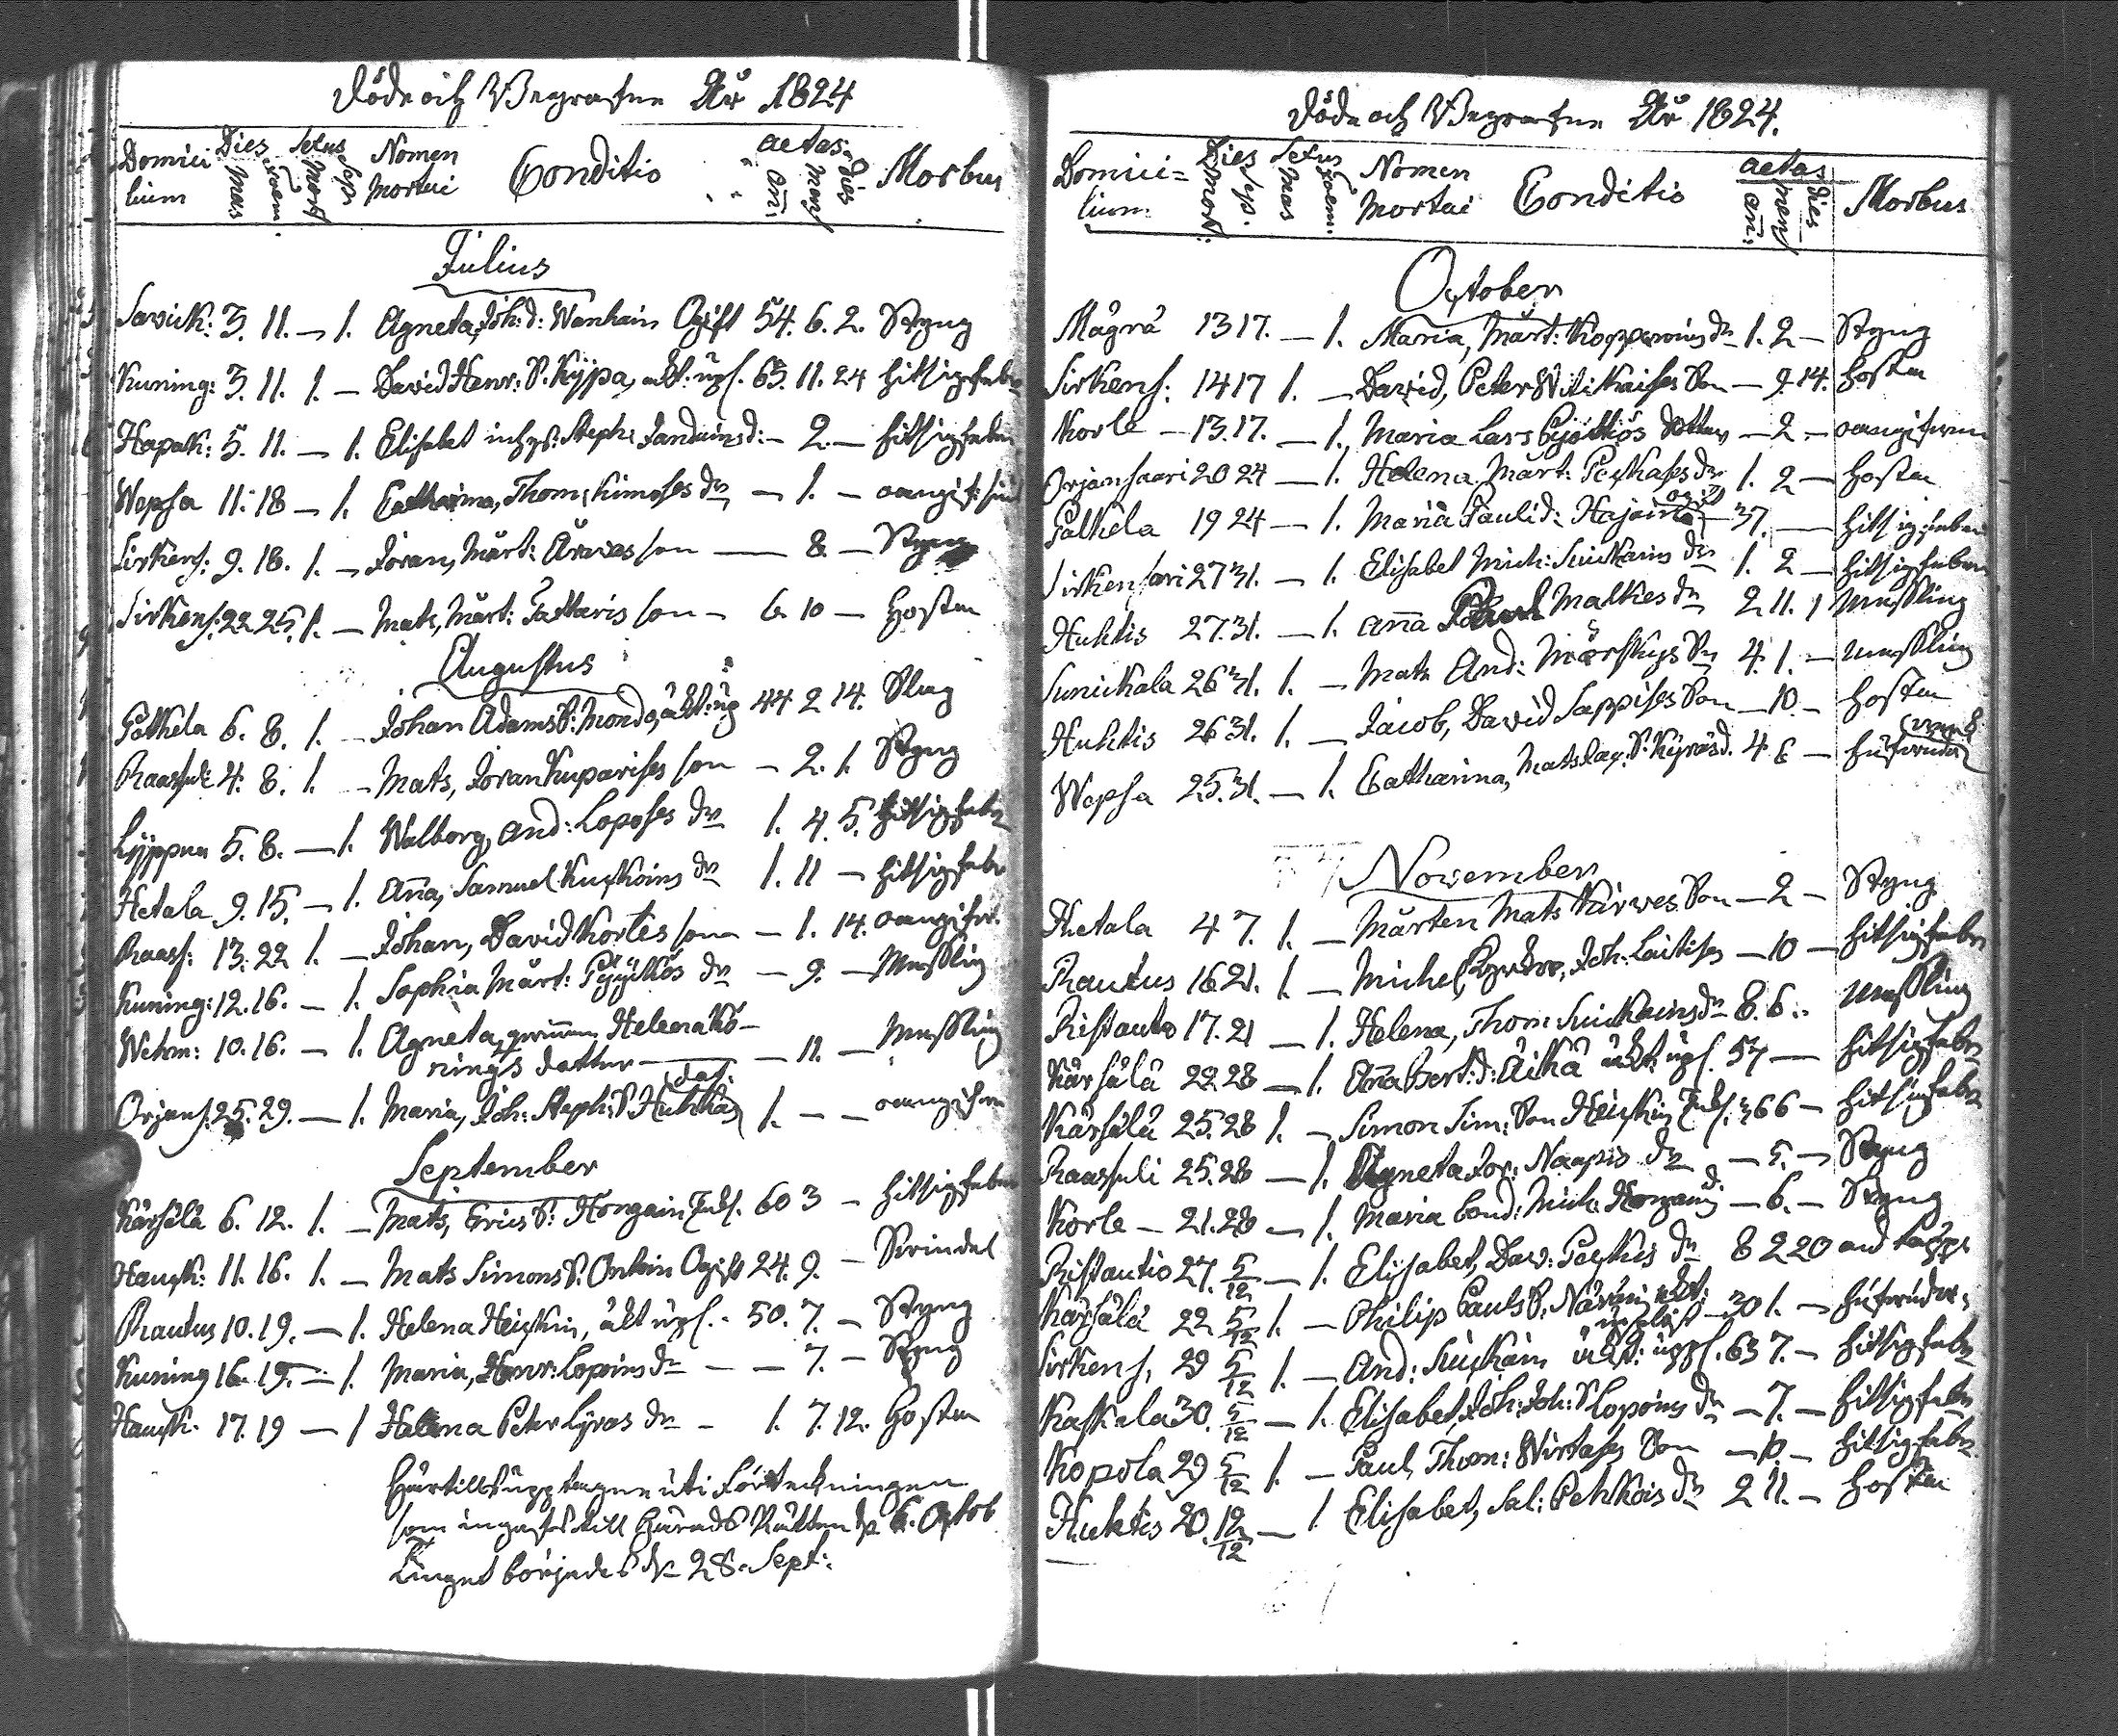 Döde och Begrafne År 1824
Domicilium Dies mort sep Sexus mas foem Nomen Mortui Conditio aetas añ: men dies Morbus
Julius
Savik: 3. 11. — 1. Agneta, Joh: d: Wanhain Ogift 54. 6. 2. Styng
Kuning: 3. 11. 1. — David Henr: S. Kyppa, 63. 11. 24 hitsigfeber
Hapak: 5. 11. — 1. Elisabet Steph: — 2. — hitsigfeber
Wepsa 11. 18 — 1. Catharina, Thom: Kimoses dr — 1. — oangif
Sirkens: 9. 18. 1. — Jöran, Mårt: Arwas son — 8 — Styng
Sirkens: 22 25. 1. — Mats, Mårt: Pattaris son — 6 10 — Hosta
Augustus
Palkela 6. 8. 1. — Johan Adams S: Mondo, 44 2 14. Slag
Raasuli 4. 8. 1. — Mats, Jöran Kuparises son — 2. 1. Styng
Lyppua 5. 8. — 1. Walborg, And: Loposes dr 1. 4. 5. hitsigfeber
Hetala 9. 15. — 1. Aña, Samuel Kuckoins dr 1. 11 — hitsigfeber
Raas: 13. 22 1. — Johan, David Kortes son — 1. 14. oangifv.
Kuning: 12. 16. — 1. Sophia Mårt: Pyykös dr — 9. — Messling
Wehm: 10. 16. — 1. Agneta, qwinnan Helena Kö-
nings dotter — 11. — Messling
Orjans: 25. 29. — 1. Maria, Joh: Steph: S. Huhka 1. — — oangifven
September
Kärsälä 6. 12. 1. — Mats, Erics S: Hongain Inhs. 60 3 — hitsigfeber
Hauk: 11. 16. 1. — Mats Simons S. Ontoin Ogift 24. 9. — Swindel
Rautus 10. 19. — 1. Helena Heickin, 50. 7. — Styng
Kuning 16. 19. — 1. Maria, Henr: Lopoins dr — 7. — Styng
Hauk: 17. 19 — 1 Helena Peter Kyras dr — 1. 7. 12. Hosta
Härtills upptagne uti Förteckningen
som ingafs till Härads Rätten d. 6. Octob
Tinget börjades d. 28. Sept:
Döde och Begrafne År 1824.
Domicilium Dies mort: sep. Sexus mas foem: Nomen Mortui Conditio aetas añ: men dies Morbus
October
Mågrå 13 17. — 1. Maria, Mårt: Kopperoins dr 1. 2 — Styng
Sirkens: 14 17 1. — David, Peter Witikaises Son — 9. 14. Hosta
Korle — 13. 17. — 1. Maria Lars Pyökkös Dotter — 2 — oangifven
Orjansaari 20 24 — 1. Helena Mårt: Packases dr 1. 2 — Hosta
Palkela 19 24 — 1. Maria Pauls d: ogift 37. — hitsigfeber
Sirkensaari 27 31. — 1. Elisabet Mich: Suikains dr 1. 2 — hitsigfeber
Huhtis 27. 31. — 1. Aña Malkies dr 2 11. 1 Messling
Sunikkala 26 31. 1. — Mats And: Mörskys Sn 4. 1. — Messling
Huhtis 26 31. 1. — Jacob, David Sappises Son — 10. — Hosta
Wepsa 25. 31. — 1. Catharina, Mats S. Kyräs d. 4. 6 — hufvud
November
Hetala 4 7. 1. — Mårten Mats Karwes Son — 2 — Styng
Rautus 16 21. 1. — Michel, Joh: Laitises — 10 — hitsigfeber
Ristauto 17. 21 — 1. Helena, Thom: Suickains dr 8. 6. Messling
Kärsälä 22. 28 — 1. Aña Bert: d: Äikä 57 — hitsigfeber
Kärsälä 25. 28 1. — Simon Sim: Son Heickin Inhs. 66 — hitsigfeber
Raasuli 25. 28 — 1. Agneta Jör: Naapis dr — 5. — Styng
Korle — 21. 28 — 1. Maria bond: Mich: Hongains d: — 6. — Styng
Ristautio 27. 5/12 — 1. Elisabet, Dav: Packies dr 8 2 20 and täppa
Kärsälä 22 5/12 1. — Philip Pauls S. 30 1. — hufvudv:
Sirkens, 29 5/12 1. — And: Suickain 63 7. — hitsigfeber
Kaskala 30. 5/12 — 1. Elisabet, Joh: Joh: S Lopoins dr — 7. — hitsigfeber
Kopola 29 5/12 1. — Paul, Thom: Wirtases Son — 10. — hitsigfeber
Huhtis 20. 12/12 — 1 Elisabet, Sal: Pehkois dr 2 11. — Hosta